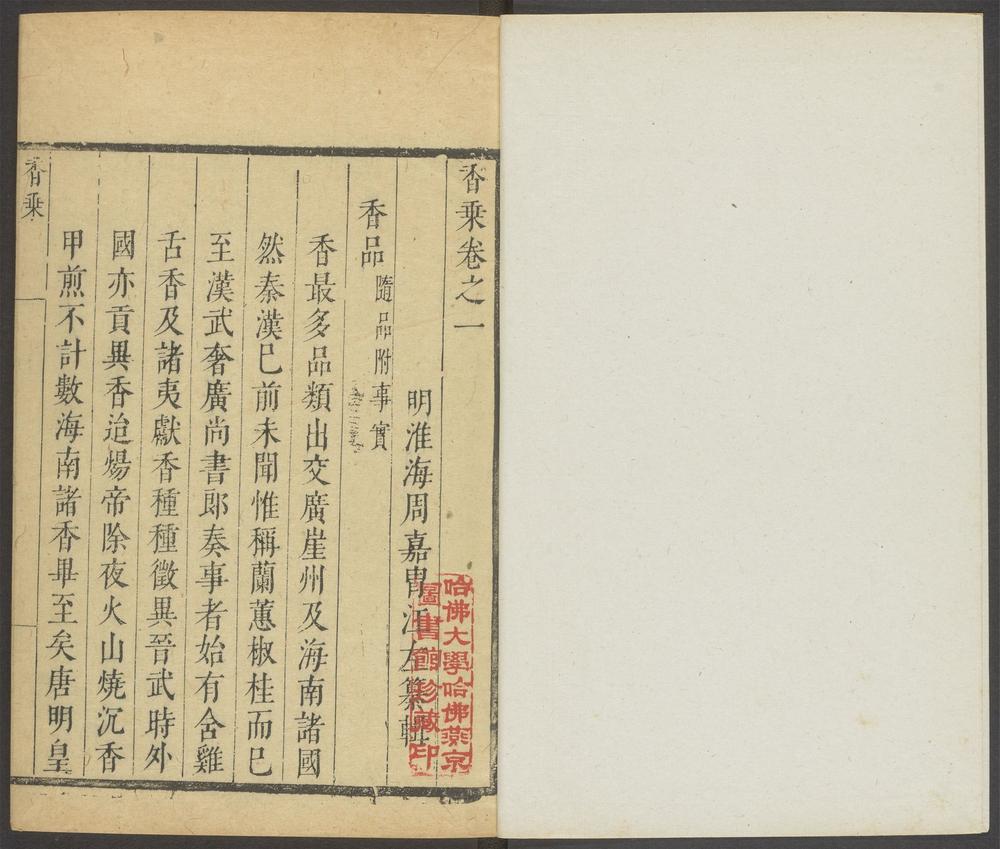 香乗卷之一
明淮海周嘉胄江左纂輯
香品隨品附事實
香最多品類出交廣崖州及海南諸國
然秦漢已前未聞惟稱蘭蕙椒桂而已
至漢武奢廣尚書郎奏事者始有含雞
舌香及諸夷獻香種種徵異晉武時外
國亦貢異香迨煬帝除夜火山燒沉香
甲煎不計數海南諸香畢至矣唐明皇
香乗
哈佛大學哈佛燕京
圖書館珍藏印